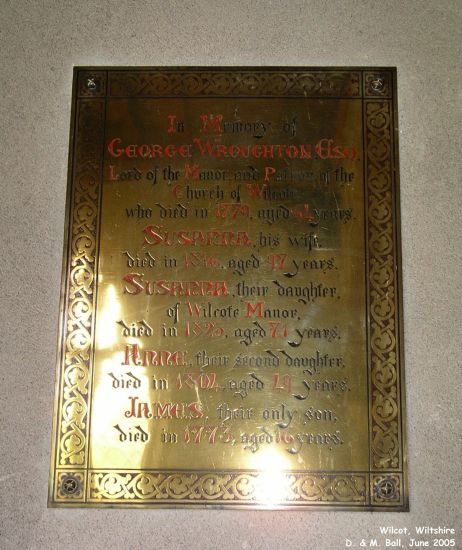 In Memory of
GEORGE WROUGHTON ESQ.
Lord of the Manor and Patron of the
Church of Wilcote,
who died in 1779, aged years.
SUSANNA, his wife,
died in 1816, aged years.
SUSANNA, their daughter,
of Wilcote Manor,
died in 1825, aged 71 years.
ANNE, their second daughter,
died in aged years.
JAMES, their only son,
died in 1773, aged 16 years.
Wilcot, Wiltshire
D. & M. Ball, June 2005